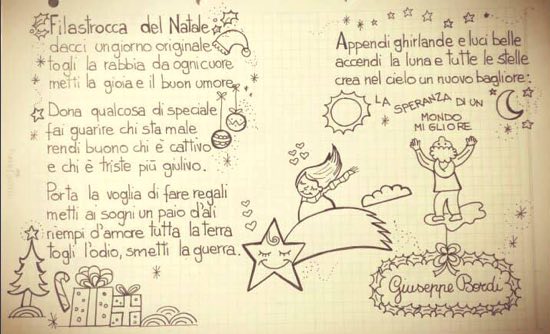 Filastrocca del Natale
dacci un giorno originale
togli la rabbia da ogni cuore
metti la gioia e il buon umore.
Dona qualcosa di speciale
fai guarire chi sta male
rendi buono chi è cattivo
e chi è triste più giulivo.
Porta la voglia di fare regali
metti ai sogni un paio d'ali
riempi d'amore tutta la terra
togli l'odio, smetti la guerra.
Appendi ghirlande e luci belle
accendi la luna e tutte le stelle
crea nel cielo un nuovo bagliore:
LA SPERANZA DI UN
MONDO
MIGLIORE
Giuseppe Bordi